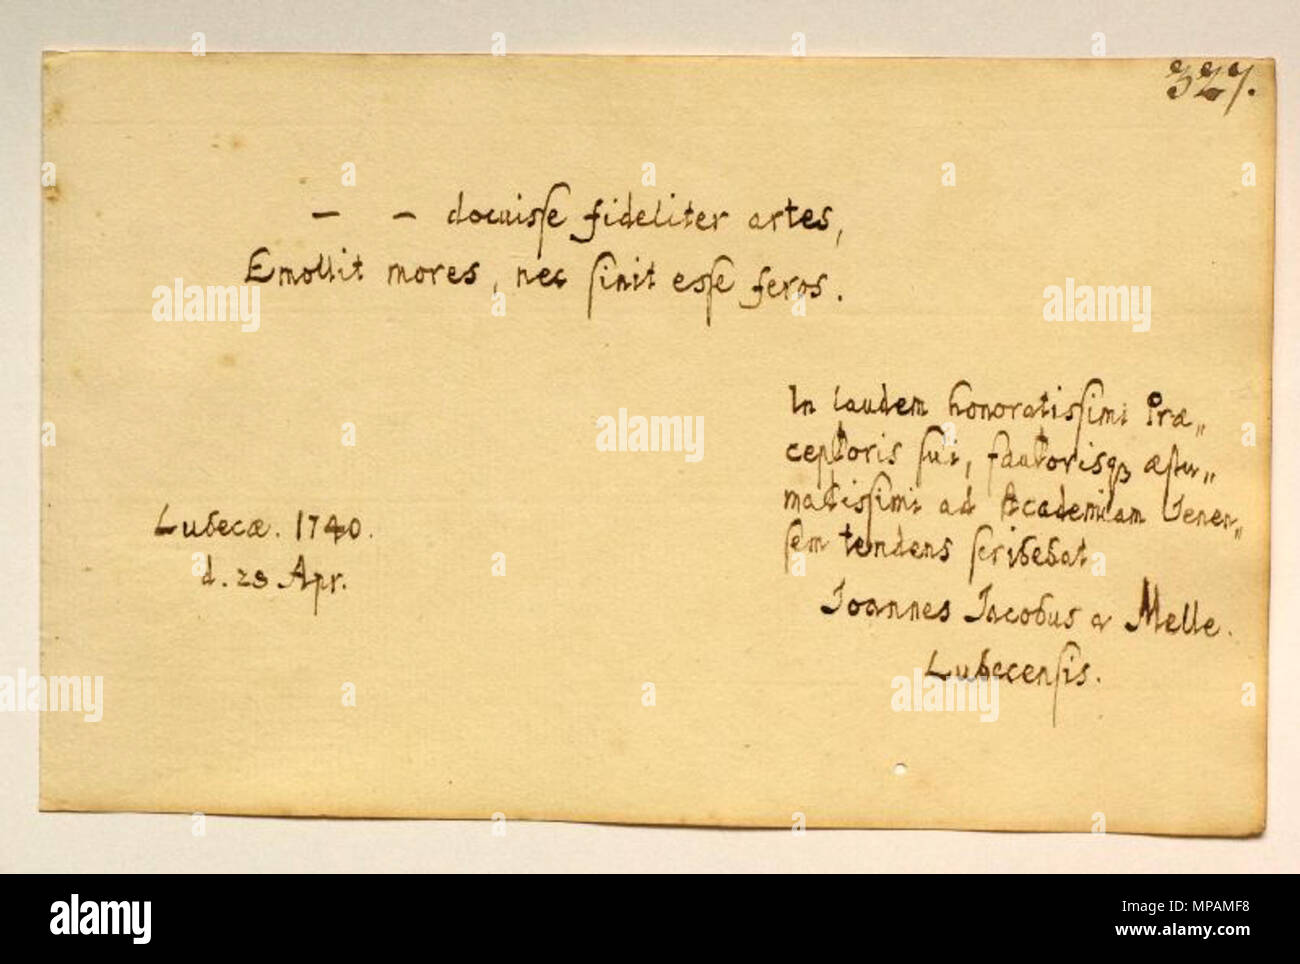 327.
— — docuisse fideliter artes,
Emollit mores, nec sinit esse feros.
In laudem honoratissimi Præ„
ceptoris sui, fautorisqꝫ æstu„
matissimi ad Academiam Jenen„
sem tendens scribebat
Joannes Jacobus a Melle.
Lubecensis.
Lubecæ. 1740.
d. 23 Apr.
alamy
Image ID: MPAMF8
www.alamy.com